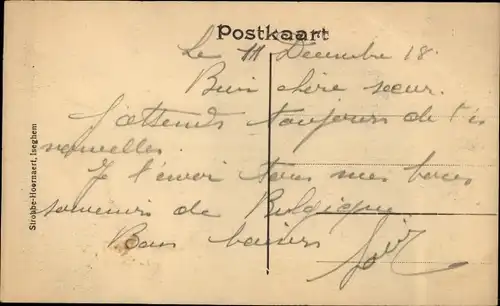 Postkaart
Le 11 Decembre 18.
Bien chère sœur.
J'attends toujours de t'es
nouvelles.
Je t'envoi tous mes bons
souvenirs de Belgique
Bons baisers
Strobbe-Hoornaert, Iseghem